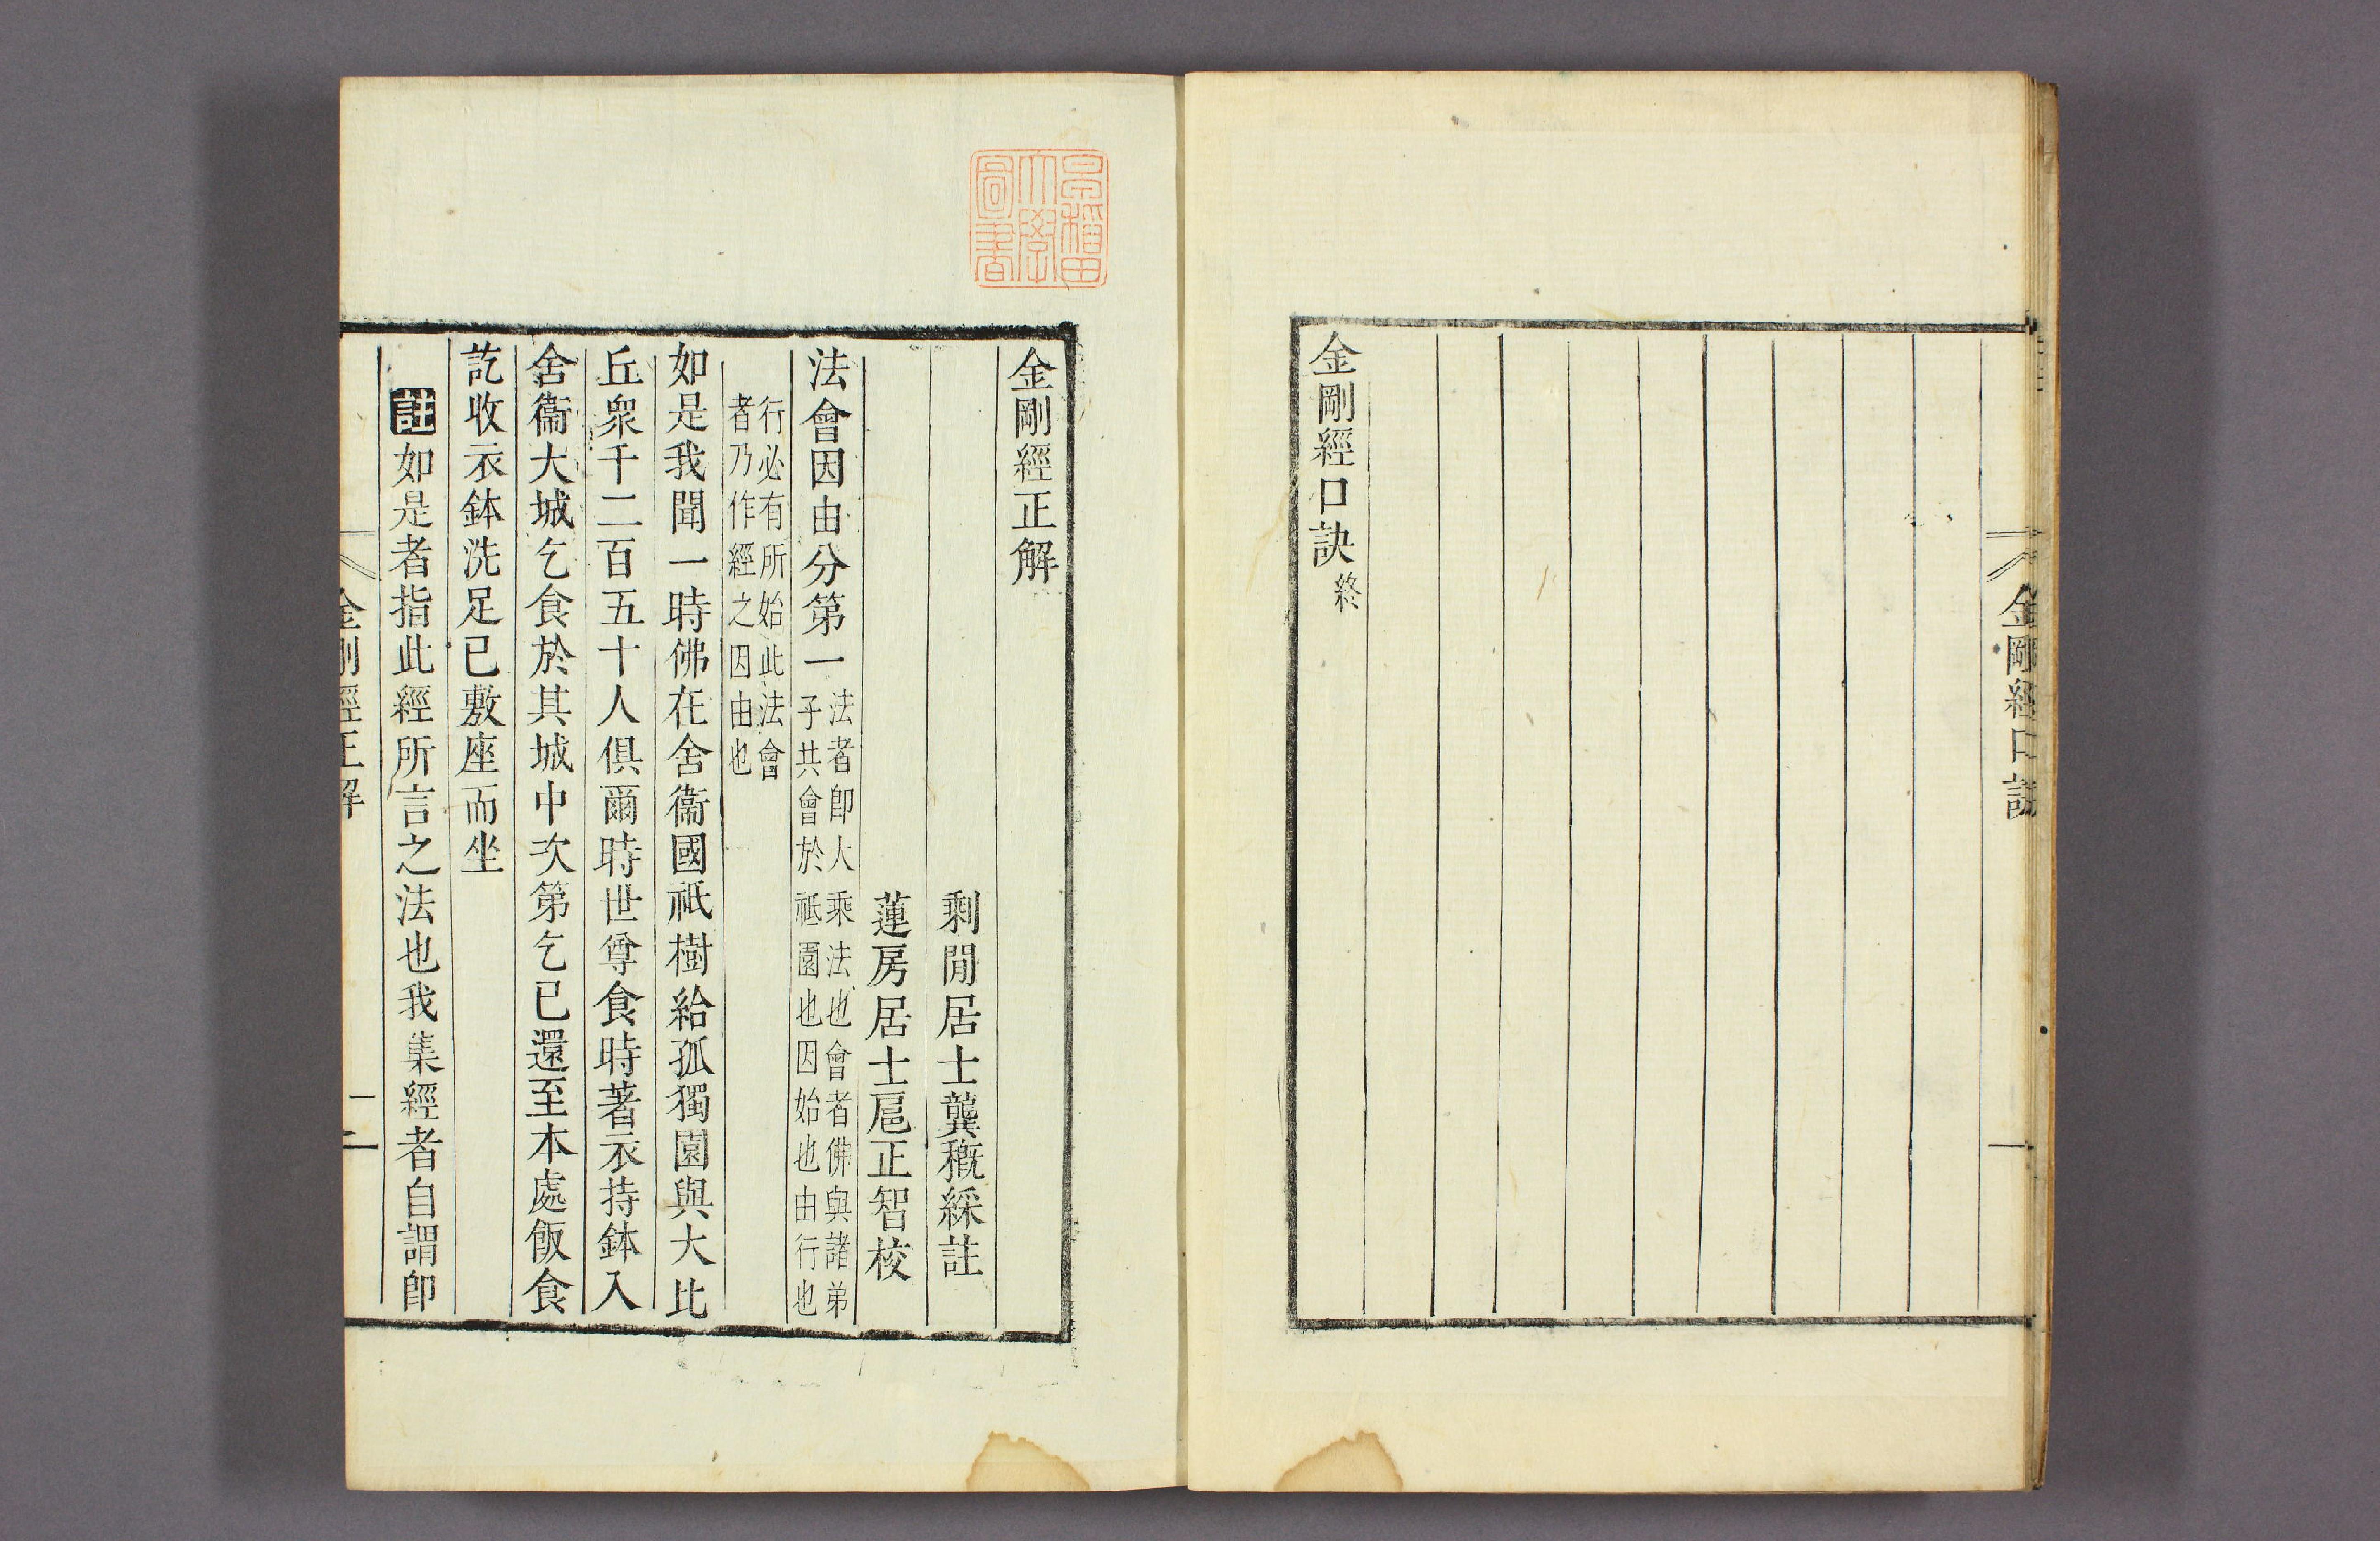 金剛經口訣
一
金剛經口訣終
早稻田
大學
圖書
金剛經正解
剩閒居士龔穊綵註
蓮房居士扈正智校
法會因由分第一
法者卽大乘法也會者佛與諸弟
子共會於祗園也因始也由行也
行必有所始此法會
者乃作經之因由也
如是我聞一時佛在舍衞國祗樹給孤獨園與大比
丘衆千二百五十人俱爾時世尊食時著衣持鉢入
舍衞大城乞食於其城中次第乞已還至本處飯食
訖收衣鉢洗足已敷座而坐
註如是者指此經所言之法也我集經者自謂卽
金剛經正解